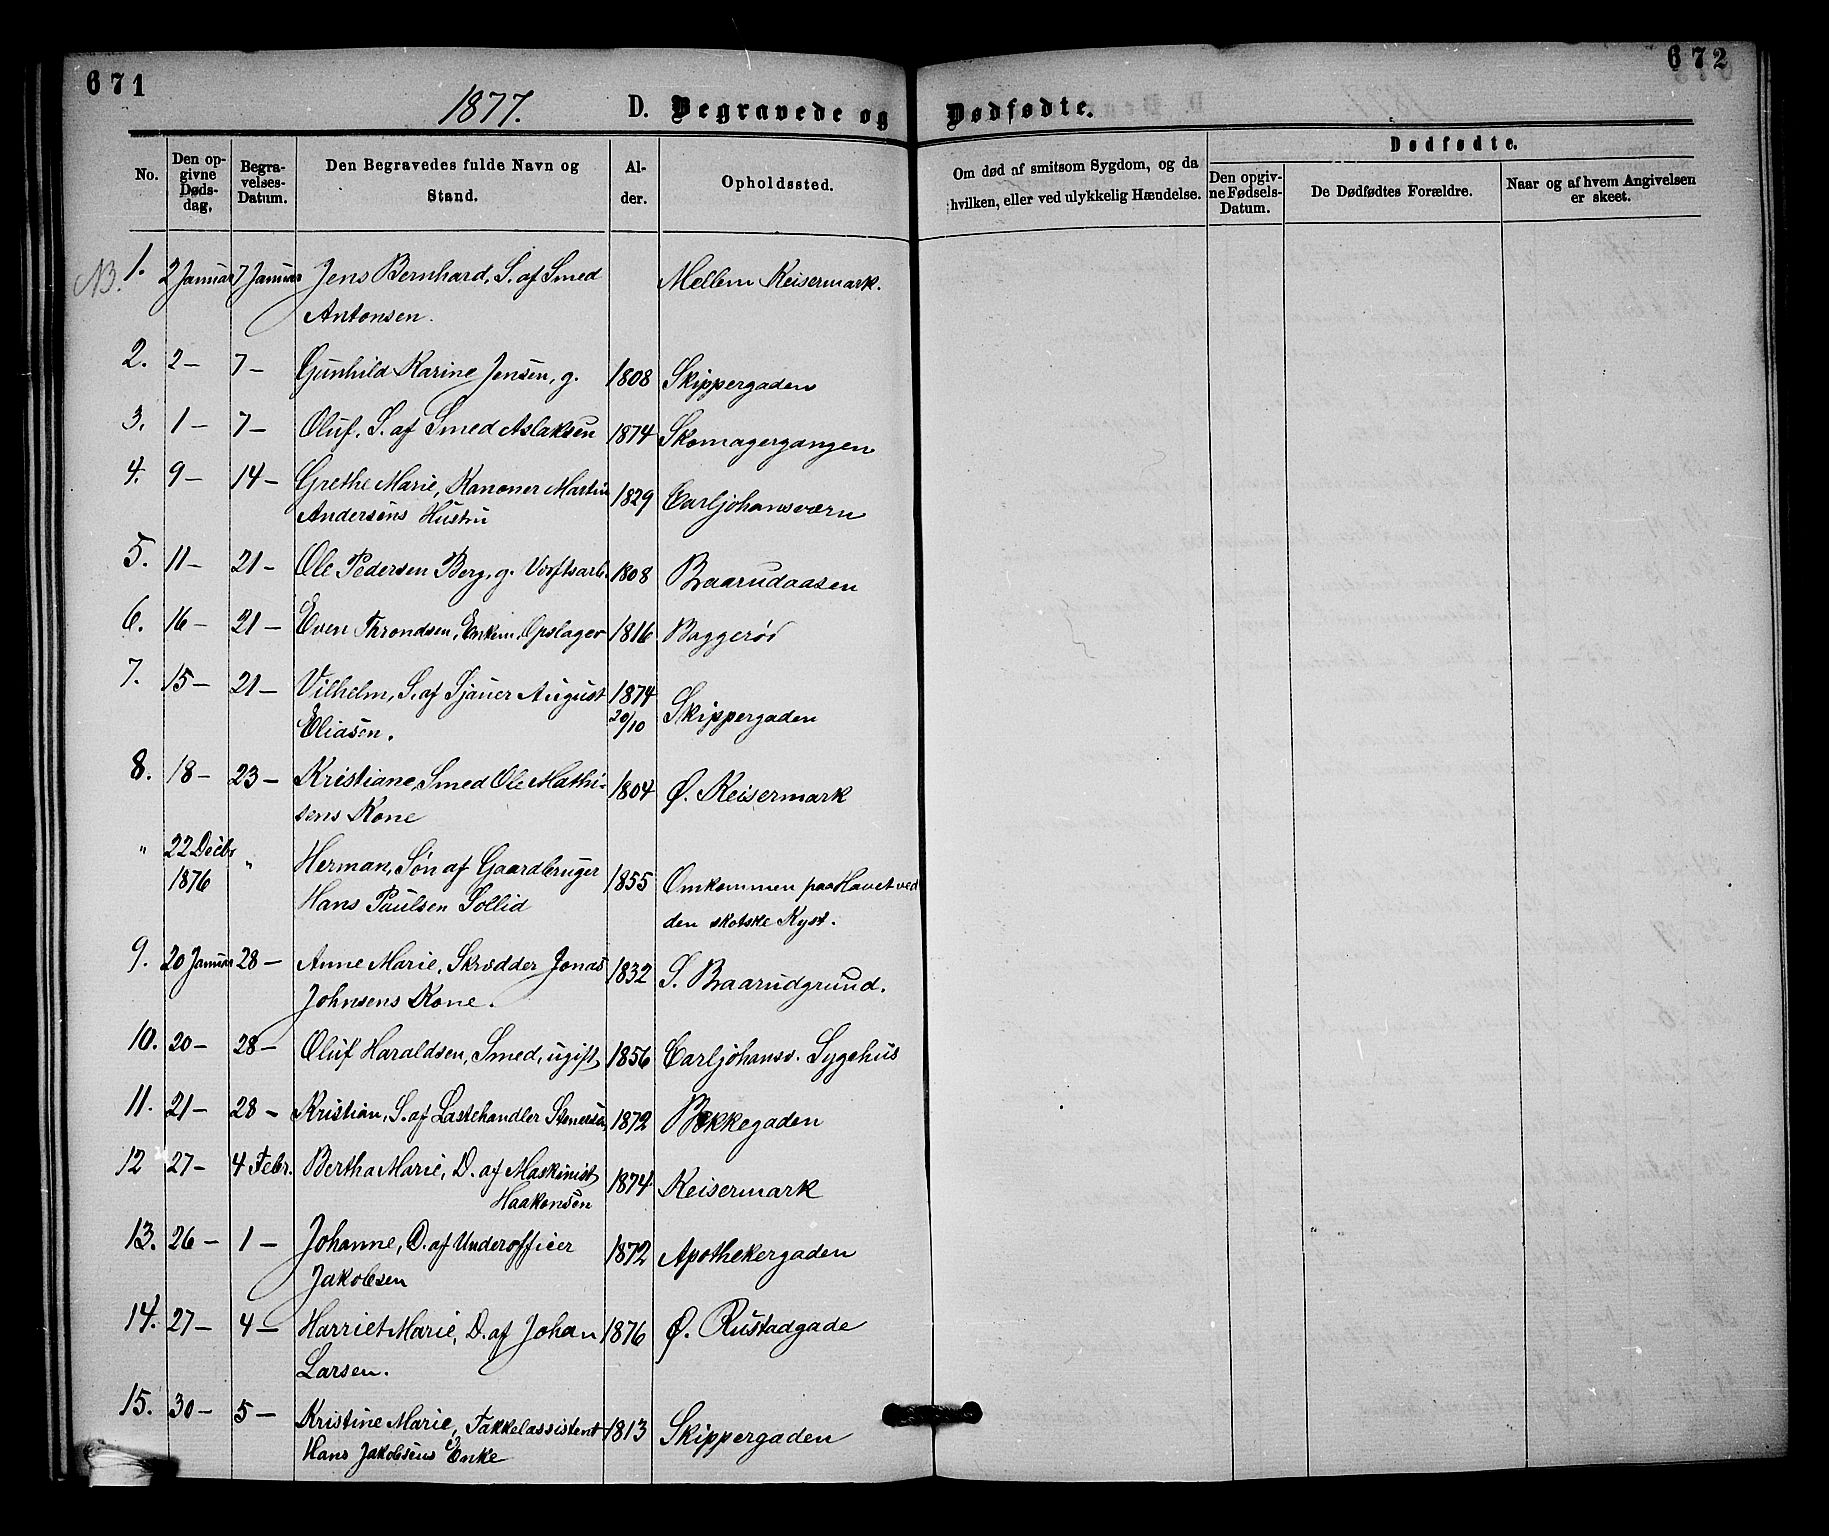 671
672
1877.
D. Begravede og
Dødfødte.
No.
Den op-
givne
Døds-
dag.
Begra-
velses-
Datum.
Den Begravedes fulde Navn og
Stand.
Al-
der.
Opholdssted.
Om død af smitsom Sygdom, og da
hvilken, eller ved ulykkelig Hændelse.
Dødfødte.
Den opgiv-
ne Fødsels-
Datum.
De Dødfødtes Forældre.
Naar og af hvem Angivelsen
er skeet.
NB. 1. 2 Januar 7 Januar Jens Bernhard, S. af Smed Mellem Keisermark.
Antonsen.
2. 2 — 7 — Gunhild Karine Jensen, g. 1808 Skippergaden
3. 1 — 7 — Oluf, S. af Smed Aslaksen 1874 Skomagergangen
4. 9 — 14 — Grethe Marie, Kanoner Martin 1829 Carljohansværn
Andersens Hustru
5. 11 — 21 — Ole Pedersen Berg, g. Verftsarb. 1808 Baarudaasen
6. 16 — 21 — Even Throndsen, Enkem. Opslager 1816 Baggerød
7. 15 — 21 — Vilhelm, S. af Tjauer August 1874 Skippergaden
Eliasen. 20/10
8. 18 — 23 — Kristiane, Smed Ole Mathi- 1804 Ø. Keisermark
sens Kone
" 22 Decbr " Herman, Søn af Gaardbruger 1855 Omkommen paa Havet ved
1876 Hans Paulsen Sollid den skotske Kyst.
9. 20 Januar 28 — Anne Marie, Skrædder Jonas 1832 S. Baarudgrund.
Johnsens Kone.
10. 20 — 28 — Oluf Haraldsen, Smed, ugift 1856 Carljohansv. Sygehus
11. 21 — 28 — Kristian, S. af Lastehandler Stenersen 1872 Bakkegaden
12 27 — 4 Febr. Bertha Marie, D. af Maskinist 1874 Keisermark
Haakonsen
13. 26 — 1 — Johanne, D. af Underofficer 1872 Apothekergaden
Jakobsen
14. 27 — 4 — Harriet Marie, D. af Johan 1876 Ø. Rustadgade
Larsen.
15. 30 — 5 — Kristine Marie, Takkelassistent 1813 Skippergaden
Hans Jakobsens Enke